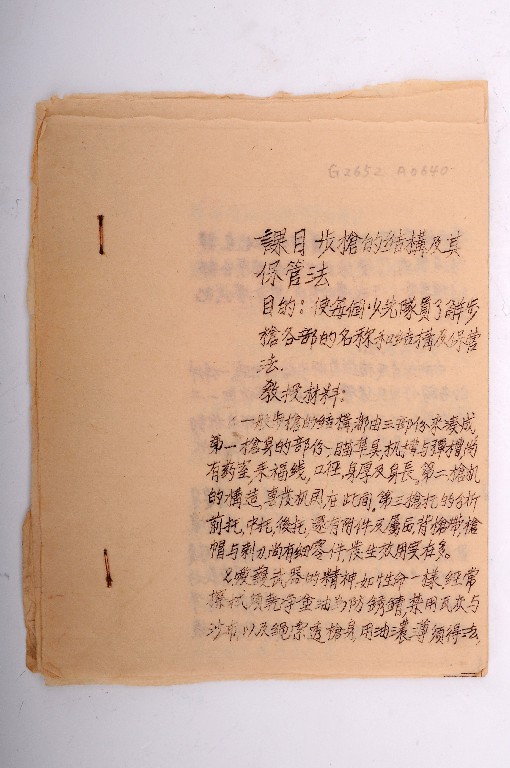 G2652 A0640
課目步槍的結構及其
保管法
目的：使每個少先隊員了解步
槍各部的名称和結構及保管
法.
教授材料：
1 一般步槍的結構,都由三部份來湊成
第一槍具的部份,瞄準具,机槽与彈槽尚
有葯室,来福线,口径,身厚及身長,第二槍机
的構造,專發机関在此間,第三槍托的分析
前托,中托,後托,還有附件及屬品背槍帶,槍
帽与刺刀尚有細零件,槍生放用要在多。
2.愛護武器的精神,如性命一樣,經常
擦拭須乾净金油為防銹鏽,禁用瓦灰与
沙布以及繩索透槍身,用油濃薄須得法